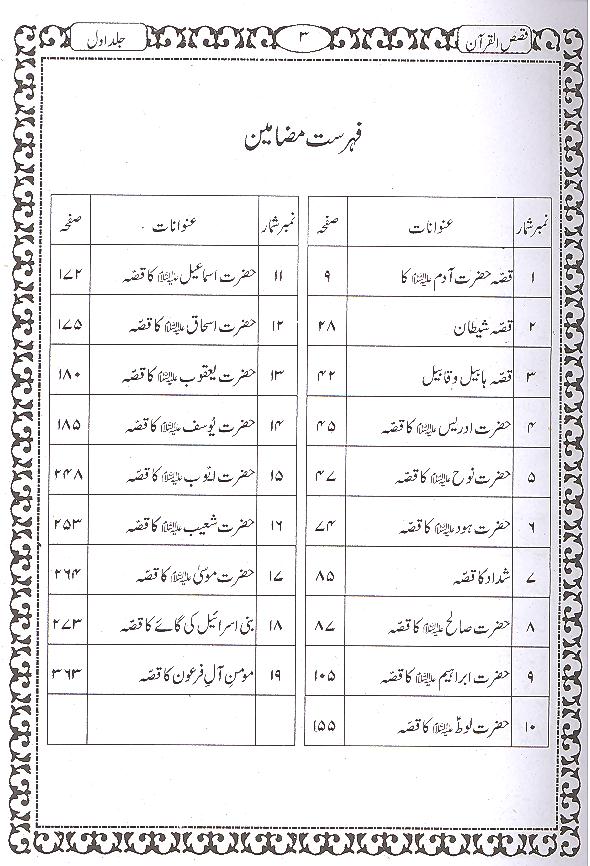 قصص القرآن
۳
جلد اول
فہرست مضامین
نمبر شمار عنوانات صفحہ
۱ قصہ حضرت آدم علیہ السلام کا ۹
۲ قصہ شیطان ۲۸
۳ قصہ ہابیل و قابیل ۴۲
۴ حضرت ادریس علیہ السلام کا قصّہ ۴۵
۵ حضرت نوح علیہ السلام کا قصّہ ۴۷
۶ حضرت ہود علیہ السلام کا قصّہ ۷۴
۷ شداد کا قصّہ ۸۵
۸ حضرت صالح علیہ السلام کا قصّہ ۸۷
۹ حضرت ابراہیم علیہ السلام کا قصّہ ۱۰۵
۱۰ حضرت لوط علیہ السلام کا قصّہ ۱۵۵
نمبر شمار عنوانات صفحہ
۱۱ حضرت اسماعیل علیہ السلام کا قصّہ ۱۷۲
۱۲ حضرت اسحاق علیہ السلام کا قصّہ ۱۷۵
۱۳ حضرت یعقوب علیہ السلام کا قصّہ ۱۸۰
۱۴ حضرت یوسف علیہ السلام کا قصّہ ۱۸۵
۱۵ حضرت ایّوب علیہ السلام کا قصّہ ۲۴۸
۱۶ حضرت شعیب علیہ السلام کا قصّہ ۲۵۳
۱۷ حضرت موسیٰ علیہ السلام کا قصّہ ۲۶۴
۱۸ بنی اسرائیل کی گائے کا قصّہ ۲۷۳
۱۹ مومنِ آلِ فرعون کا قصّہ ۳۶۳